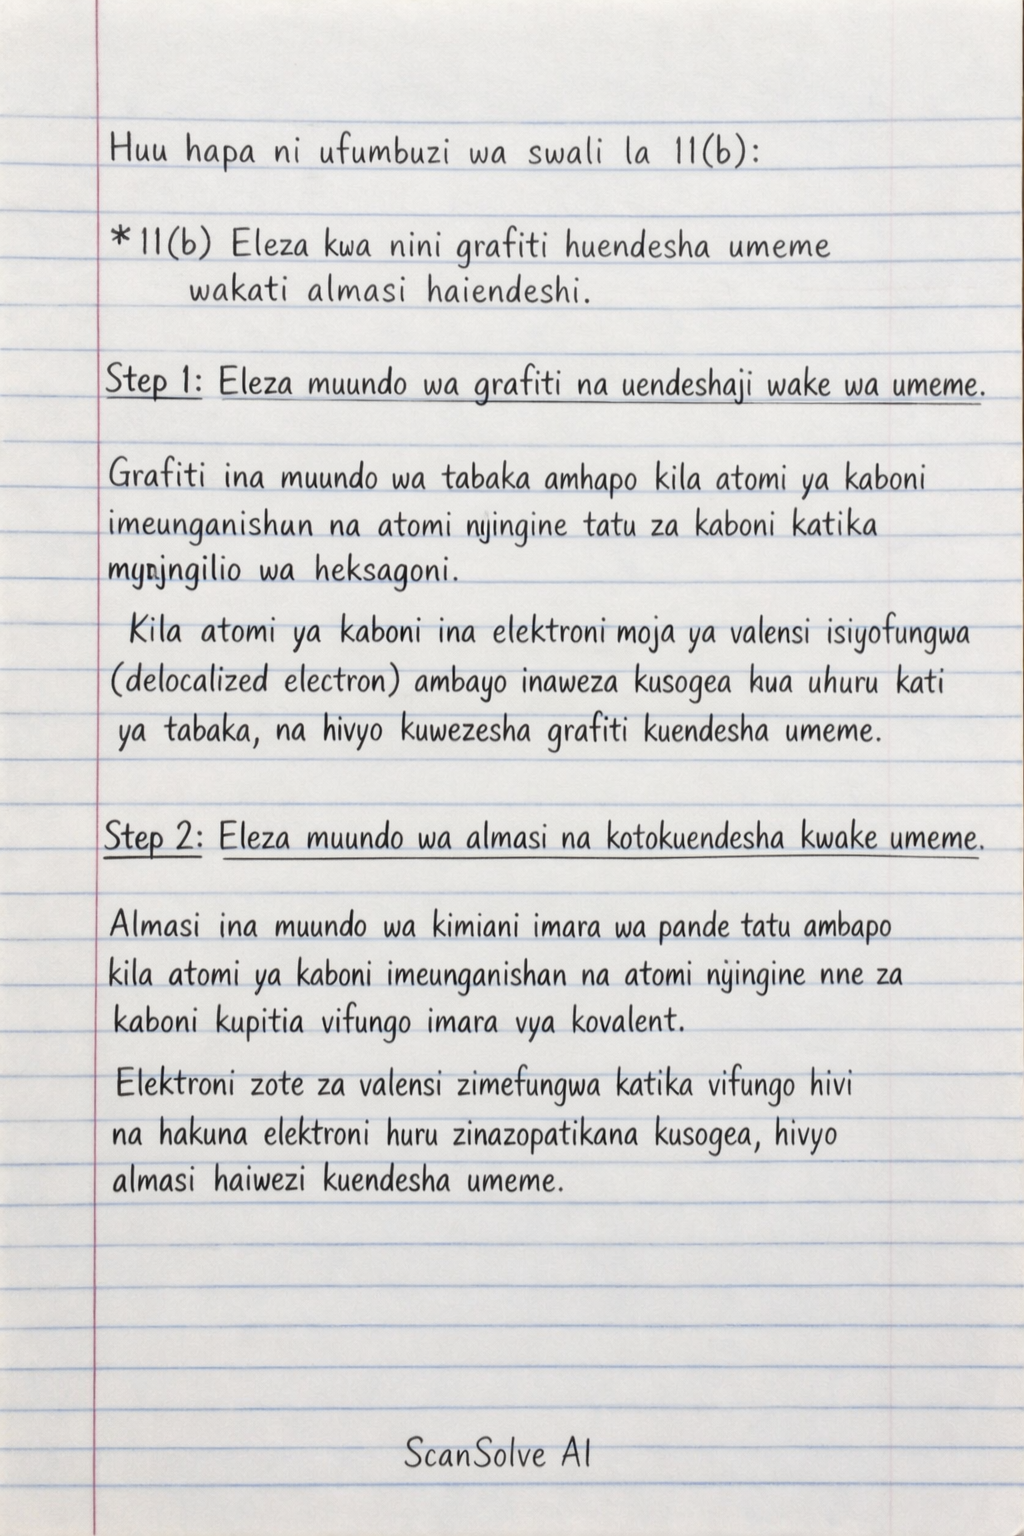 Huu hapa ni ufumbuzi wa swali la 11(b):
*11(b) Eleza kwa nini grafiti huendesha umeme
wakati almasi haiendeshi.
Step 1: Eleza muundo wa grafiti na uendeshaji wake wa umeme.
Grafiti ina muundo wa tabaka amhapo kila atomi ya kaboni
imeunganishun na atomi nyingine tatu za kaboni katika
wa heksagoni.
Kila atomi ya kaboni ina elektroni moja ya valensi isiyofungwa
(delocalized electron) ambayo inaweza kusogea kua uhuru kati
ya tabaka, na hivyo kuwezesha grafiti kuendesha umeme.
Step 2: Eleza muundo wa almasi na kotokuendesha kwake umeme.
Almasi ina muundo wa kimiani imara wa pande tatu ambapo
kila atomi ya kaboni imeunganishan na atomi nyingine nne za
kaboni kupitia vifungo imara vya kovalent.
Elektroni zote za valensi zimefungwa katika vifungo hivi
na hakuna elektroni huru zinazopatikana kusogea, hivyo
almasi haiwezi kuendesha umeme.
ScanSolve AI